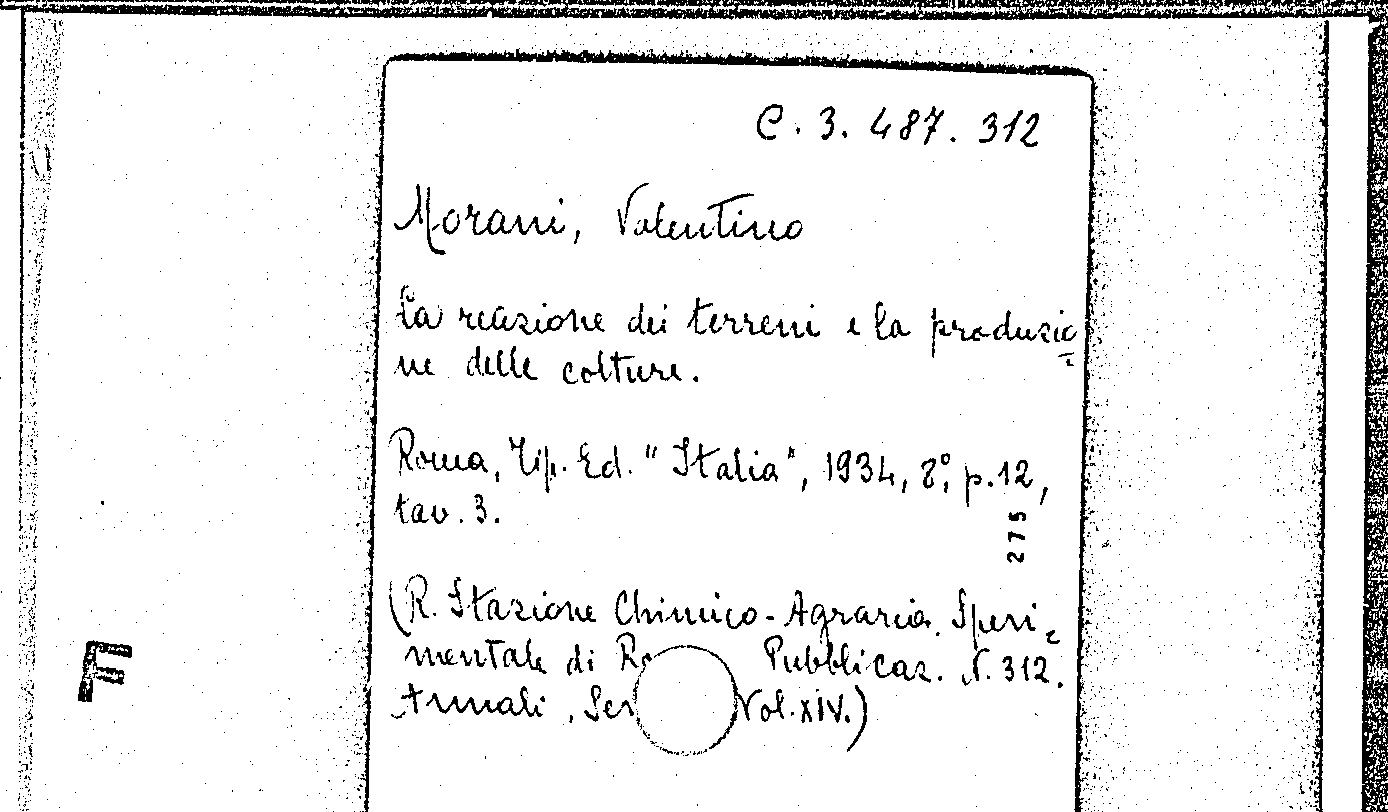 C. 3. 487. 312
Morani, Valentino
La reazione dei terreni e la produzio=
ne delle colture.
Roma, Tip. Ed. "Italia", 1934, 8°, p. 12,
tav. 3.
275
(R. Stazione Chimico-Agraria Speri=
mentale di Pubblicaz. N. 312.
Annali, Vol. XIV.)
F